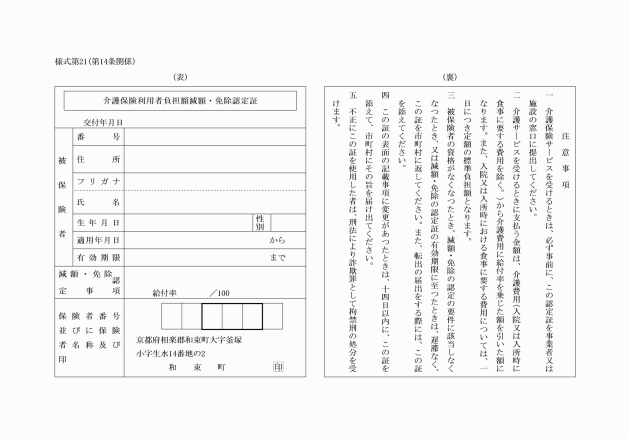 様式第21(第14条関係)
(表)
介護保険利用者負担額減額・免除認定証
交付年月日
被保険者
番号
住所
フリガナ
氏名
生年月日
性別
適用年月日 から
有効期限 まで
減額・免除認
定事項
給付率 /100
保険者番号
並びに保険
者名称及び
印
京都府相楽郡和束町大字釜塚
小字生水14番地の2
和束町 印
(裏)
注意事項
一 介護保険サービスを受けるときは、必ず事前に、この認定証を事業者又は
施設の窓口に提出してください。
二 介護サービスを受けるときに支払う金額は、介護費用(入院又は入所時に
食事に要する費用を除く。)から介護費用に給付率を乗じた額を引いた額に
なります。また、入院又は入所時における食事に要する費用については、一
日につき定額の標準負担額となります。
三 被保険者の資格がなくなつたとき、減額・免除の認定の要件に該当しなく
なつたとき、又は減額・免除の認定証の有効期限に至つたときは、遅滞なく、
この証を市町村に返してください。また、転出の届出をする際には、この証
を添えてください。
四 この証の表面の記載事項に変更があつたときは、十四日以内に、この証を
添えて、市町村にその旨を届け出てください。
五 不正にこの証を使用した者は、刑法により詐欺罪として拘禁刑の処分を受
けます。